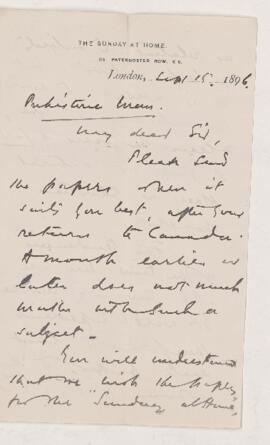 THE SUNDAY AT HOME.
56 PATERNOSTER ROW, E.C.
London, Sept 15. 1896.
Prehistoric Man.
My dear Sir,
Please send
the papers when it
suits you best, after your
return to Canada.
A month earlier or
later does not much
matter with such a
subject.
You will understand
that we wish the papers
for the Sunday at Home,